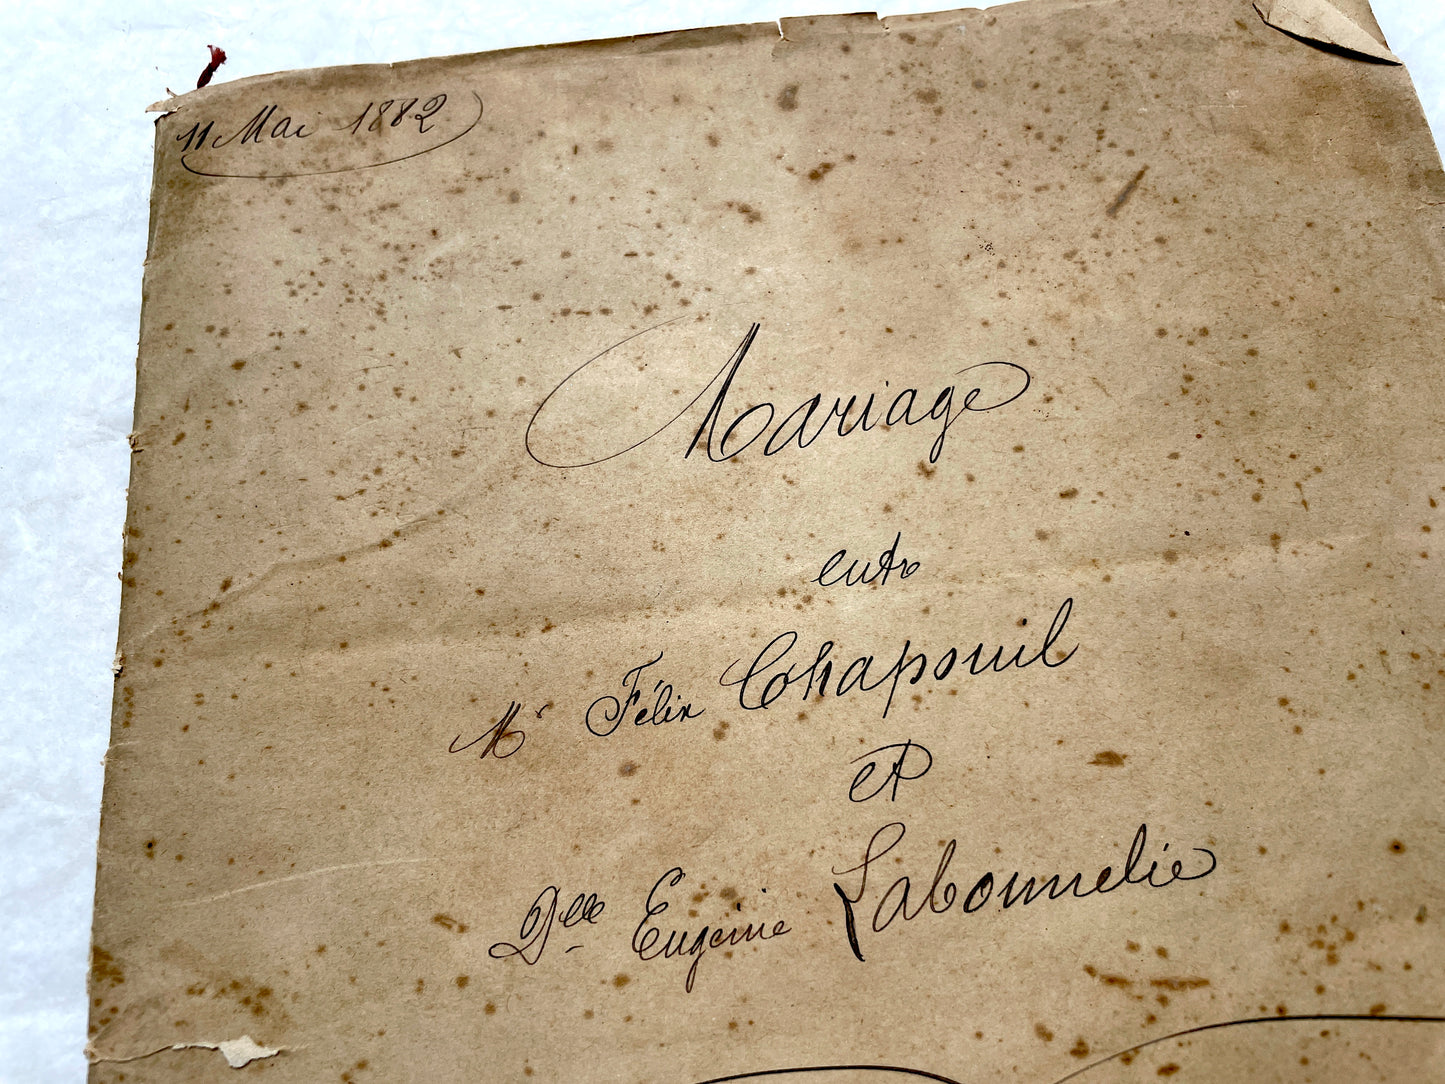 11 Mai 1882
Mariage
entre
Mr Félix Chapouil
et
Delle Eugénie Labonnelie